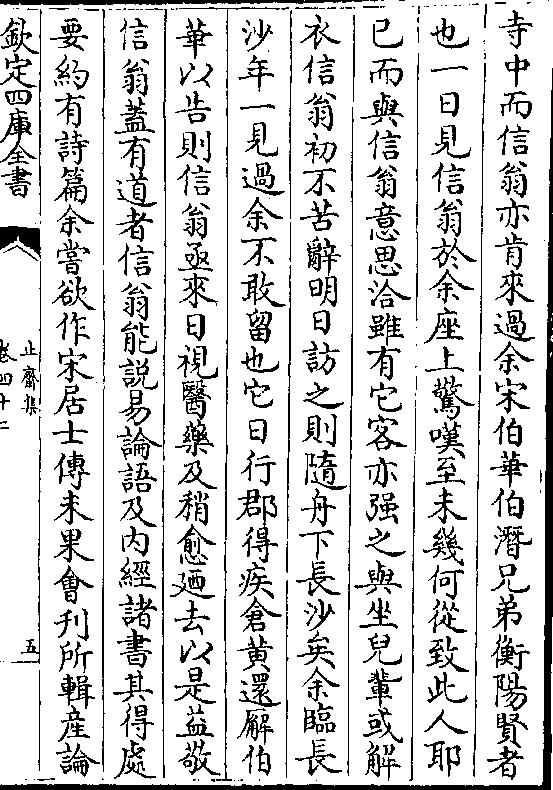 寺中而信翁亦肯來過余宋伯華伯潛兄弟衡陽賢者
也一日見信翁於余座上驚嘆至未幾何從致此人耶
已而與信翁意思洽雖有它客亦强之與坐兒輩或解
衣信翁初不苦辭明日訪之則隨舟下長沙矣余臨長
沙年一見過余不敢留也它日行郡得疾倉黄還廨伯
華以告則信翁亟來日視醫藥及稍愈廼去以是益敬
信翁蓋有道者信翁能説易論語及内經諸書其得處
要約有詩篇余嘗欲作宋居士傳未果會刋所輯産論
欽定四庫全書
止齋集
卷四十二
五